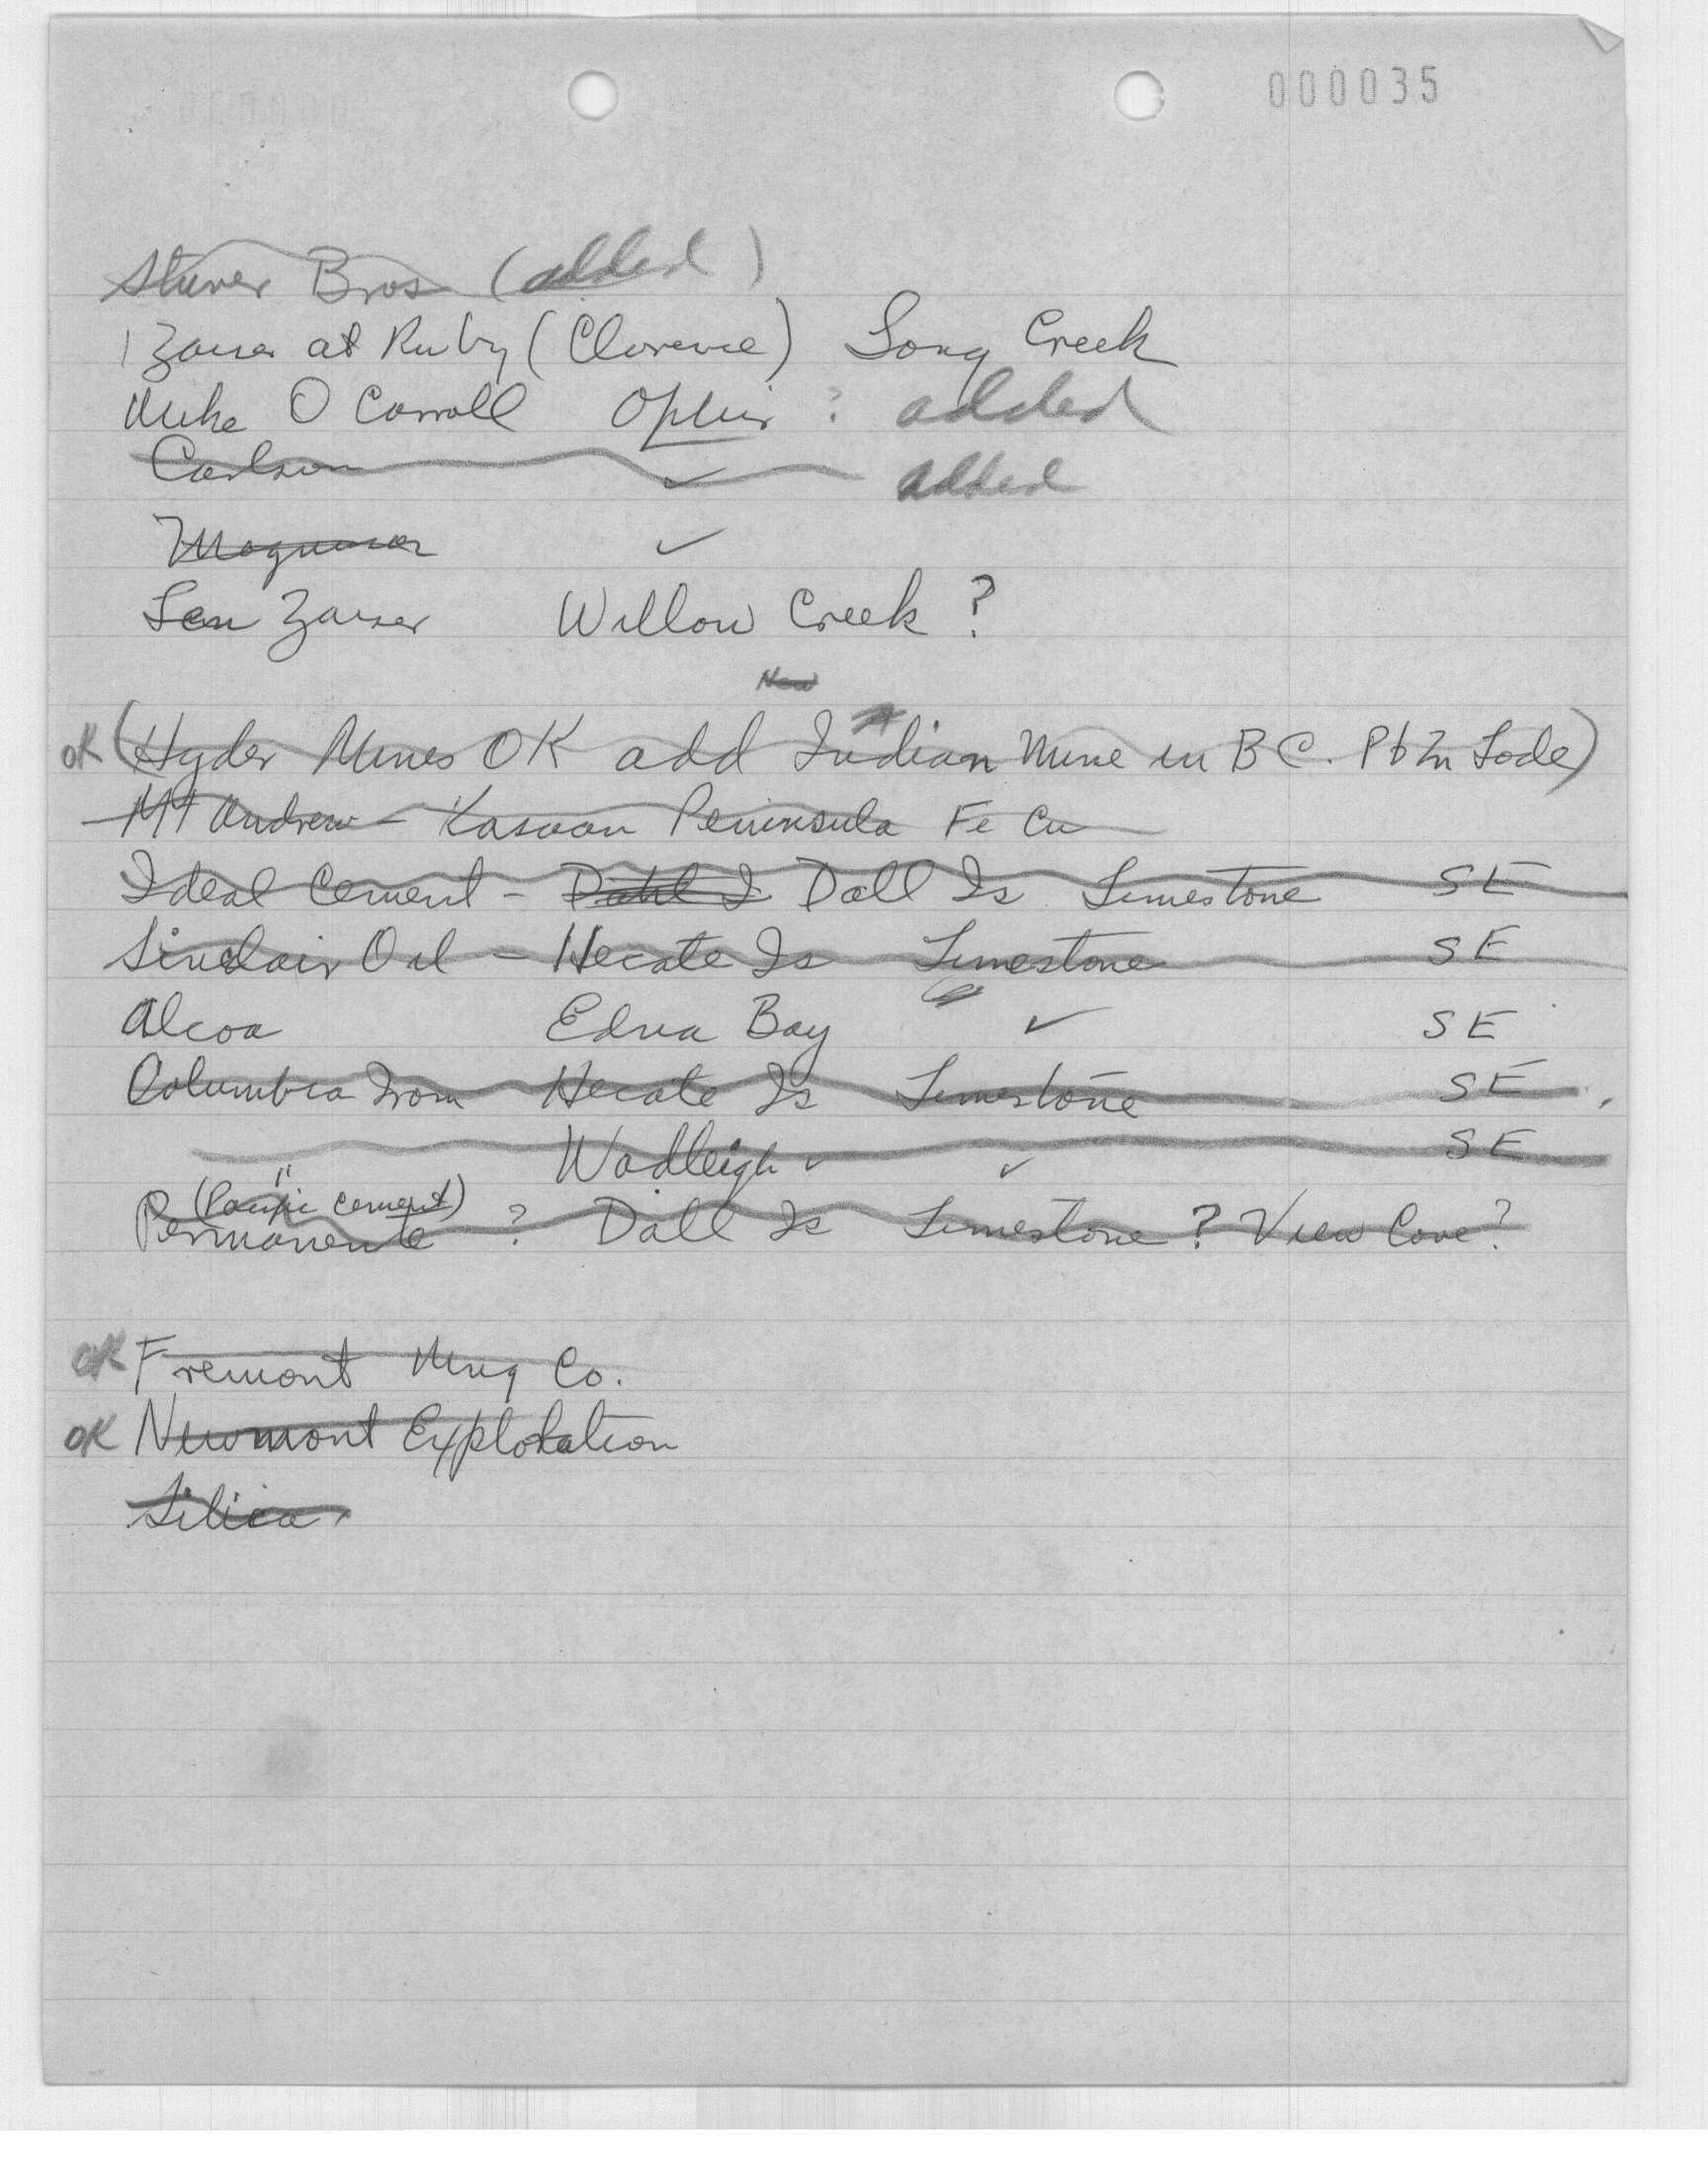 000035
Stuver Bros (added)
Zaiser at Ruby (Clarence) Long Creek
Mike O Carroll Ophir ? added
Carlson ✓ added
Magnuson ✓
Len Zaiser Willow Creek ?
New
OK (Hyder Mines OK add Indian Mine in B C. Pb Zn Lode)
Mt Andrew - Kasaan Peninsula Fe Cu
Ideal Cement - Dahl I Dall Is Limestone SE
Sinclair Oil - Hecate Is Limestone SE
Alcoa Edna Bay ✓ SE
Columbia Iron Hecate Is Limestone SE
" Wadleigh ✓ ✓ SE
(Pacific Cement)
Permanente ? Dall Is Limestone ? View Cove ?
OK Fremont Mng Co.
OK Newmont Exploration
Silica